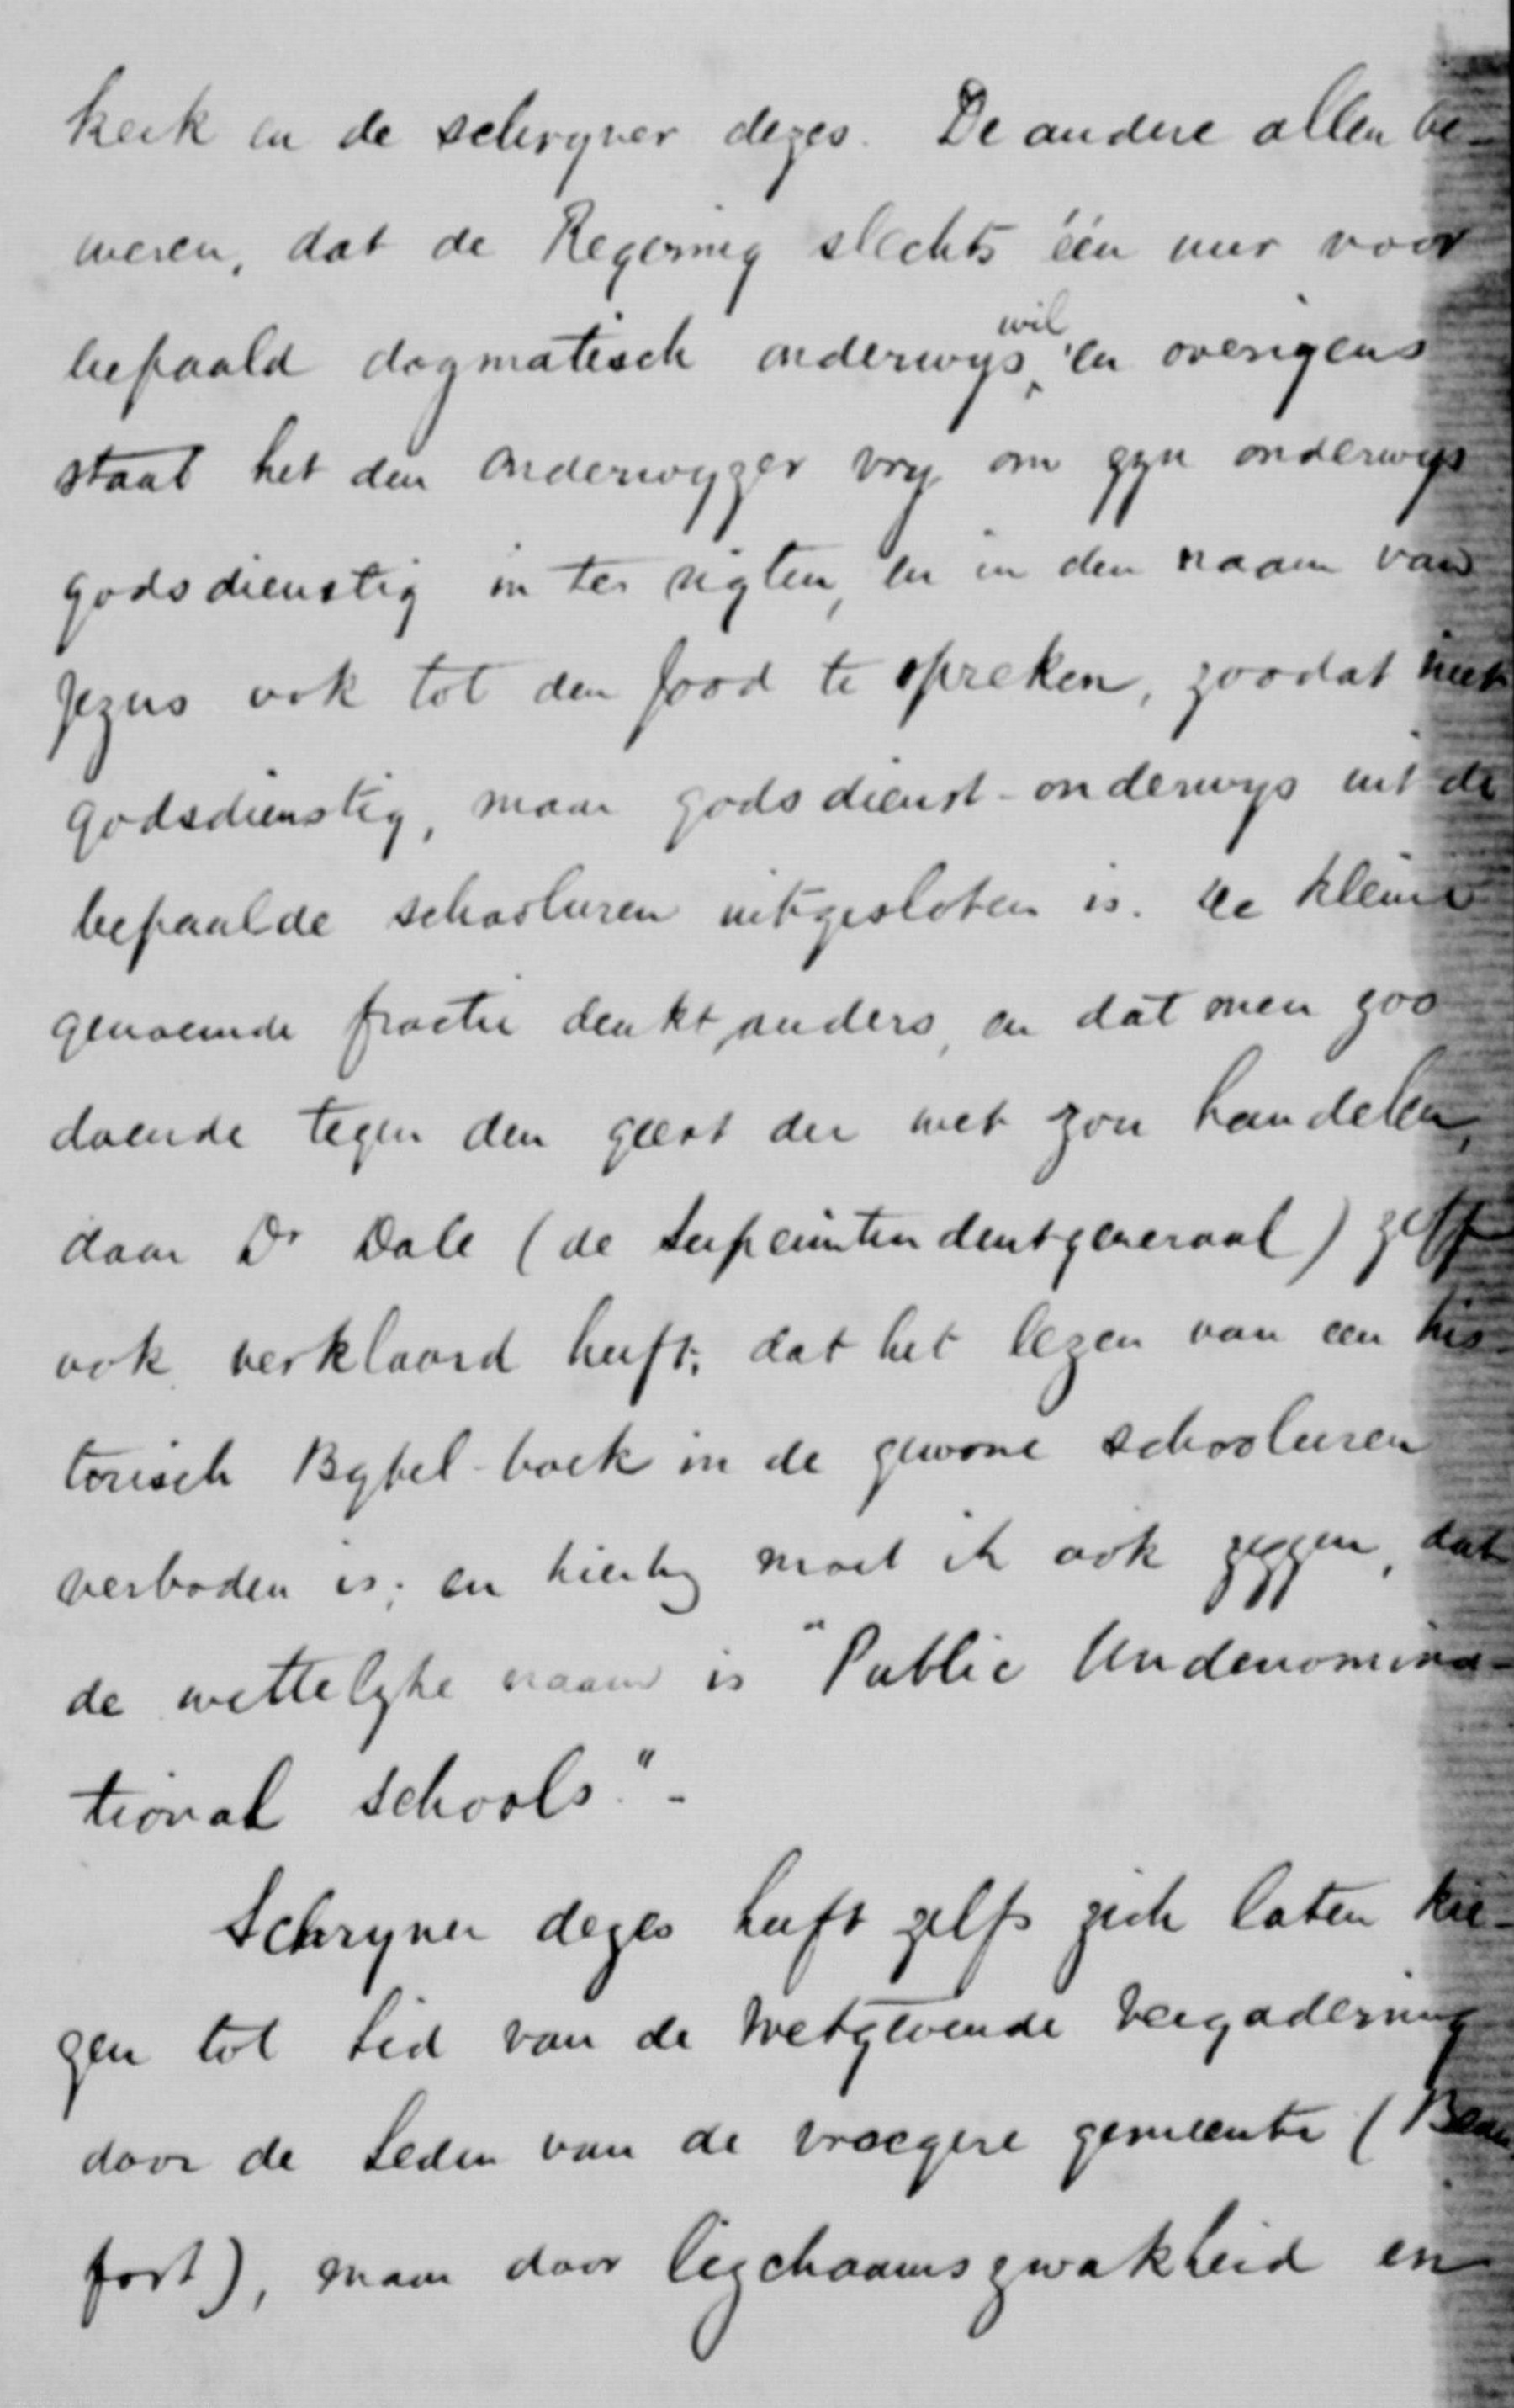 kerk en de schryver dezes. De andere allen be-
weren, dat de Regering slechts één uur voor
bepaald dogmatisch onderwys wil en overigens
staat het den onderwyzer vry om zyn onderwys
godsdienstig in te rigten, en in den naam van
Jezus ook tot den Jood te spreken, zoodat niet
godsdienstig, maar godsdienst-onderwys uit de
bepaalde schooluren uitgesloten is. De kleine
genoemde fractie denkt anders, en dat men zoo
doende tegen den geest der wet zou handelen,
daar Dr Dale (de Superintendentgeneraal) zelf
ook verklaard heeft, dat het lezen van een his-
torisch Bybel-boek in de gewone schooluren
verboden is; en hierby moet ik ook zeggen, dat
de wettelyke naam is "Public Undenomina-
tional schools."-
Schryver dezes heeft zelfs zich laten kie-
zen tot Lid van de Wetgevende Vergadering
door de Leden van de vroegere gemeente (Beau-
fort), maar door ligchaamszwakheid en